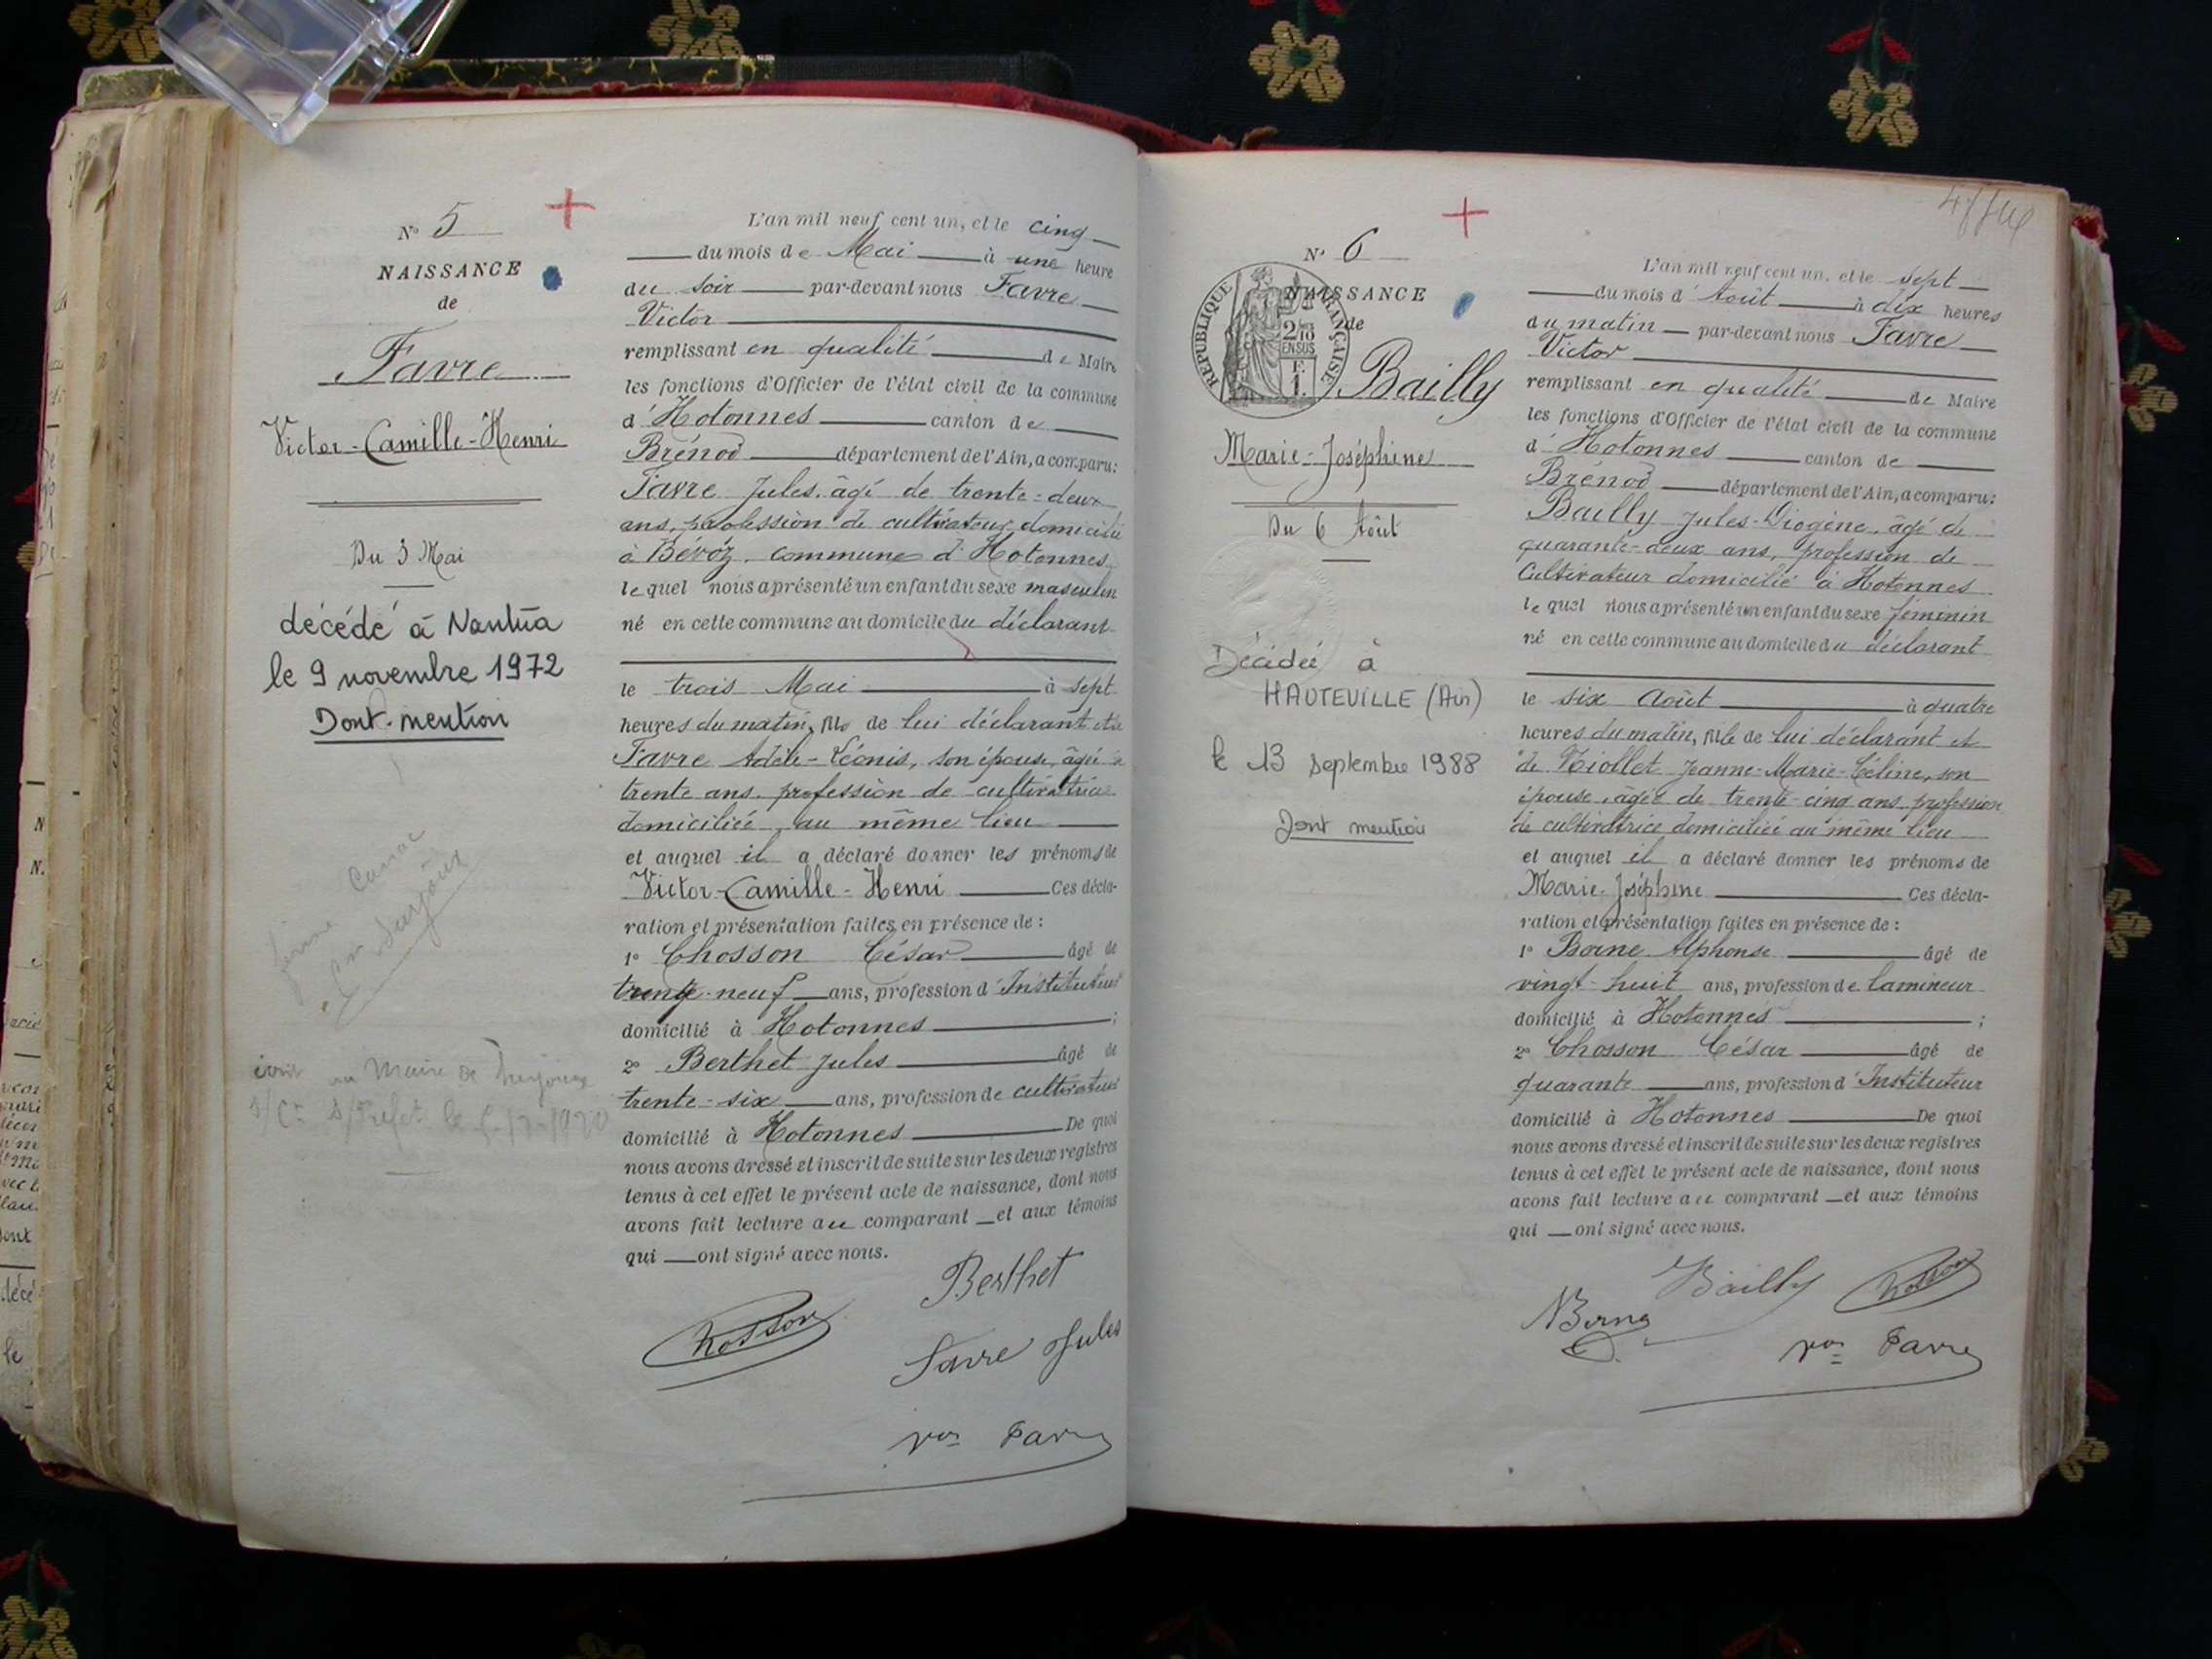 N° 5
NAISSANCE
de
Favre
Victor-Camille-Henri
Du 3 Mai
décédé à Nantua
le 9 novembre 1972
Dont mention
L'an mil neuf cent un, et le cinq
du mois de Mai à une heure
du soir par-devant nous Favre
Victor
remplissant en qualité de Maire
les fonctions d'Officier de l'état civil de la commune
d'Hotonnes canton de
Brénod département de l'Ain, a comparu:
Favre Jules, âgé de trente-deux
ans, profession de cultivateur, domicilié
à Bévoz, commune d'Hotonnes
lequel nous a présenté un enfant du sexe masculin
né en cette commune au domicile du déclarant
le trois Mai à sept
heures du matin, fils de lui déclarant et de
Favre Adèle-Léonis, son épouse, âgée de
trente ans, profession de cultivatrice
domiciliée au même lieu
et auquel il a déclaré donner les prénoms de
Victor-Camille-Henri Ces décla-
ration et présentation faites en présence de :
1° Chosson César âgé de
trente-neuf ans, profession d'Instituteur
domicilié à Hotonnes ;
2° Berthet Jules âgé de
trente-six ans, profession de cultivateur
domicilié à Hotonnes De quoi
nous avons dressé et inscrit de suite sur les deux registres
tenus à cet effet le présent acte de naissance, dont nous
avons fait lecture au comparant et aux témoins
qui ont signé avec nous.
Berthet
Chosson
Favre Jules
Vor Favre
N° 6
NAISSANCE
de
RÉPUBLIQUE FRANÇAISE
2/10
EN SUS
F.
1.
Bailly
Marie-Joséphine
Du 6 Août
Décédée à
HAUTEVILLE (Ain)
le 13 septembre 1988
Dont mention
L'an mil neuf cent un, et le sept
du mois d'Août à dix heures
du matin par-devant nous Favre
Victor
remplissant en qualité de Maire
les fonctions d'Officier de l'état civil de la commune
d'Hotonnes canton de
Brénod département de l'Ain, a comparu:
Bailly Jules-Diogène, âgé de
quarante-deux ans, profession de
Cultivateur domicilié à Hotonnes
lequel nous a présenté un enfant du sexe féminin
né en cette commune au domicile du déclarant
le six Août à quatre
heures du matin, fille de lui déclarant et
de Tiollet Jeanne-Marie-Céline, son
épouse, âgée de trente-cinq ans, profession
de cultivatrice domiciliée au même lieu
et auquel il a déclaré donner les prénoms de
Marie-Joséphine Ces décla-
ration et présentation faites en présence de :
1° Borne Alphonse âgé de
vingt-huit ans, profession de lamineur
domicilié à Hotonnes ;
2° Chosson César âgé de
quarante ans, profession d'Instituteur
domicilié à Hotonnes De quoi
nous avons dressé et inscrit de suite sur les deux registres
tenus à cet effet le présent acte de naissance, dont nous
avons fait lecture au comparant et aux témoins
qui ont signé avec nous.
Bailly
Chosson
Borne
Vor Favre